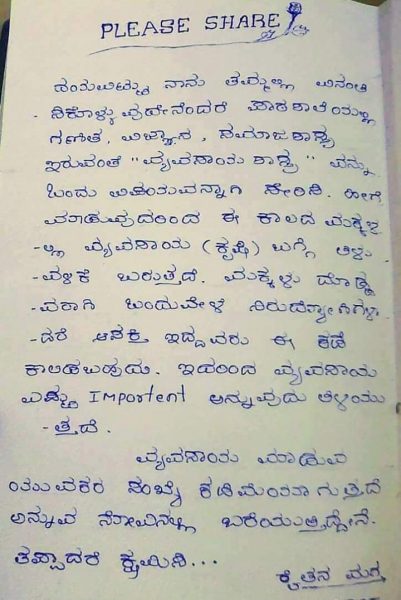 PLEASE SHARE
ದಯವಿಟ್ಟು ನಾನು ತಮ್ಮಲ್ಲಿ ವಿನಂತಿ
-ಸಿಕೊಳ್ಳುವುದೇನೆಂದರೆ ಪಾಠಶಾಲೆಯಲ್ಲಿ
ಗಣಿತ, ವಿಜ್ಞಾನ, ಸಮಾಜಶಾಸ್ತ್ರ
ಇರುವಂತೆ "ವ್ಯವಸಾಯಶಾಸ್ತ್ರ" ವನ್ನು
ಒಂದು ವಿಷಯವನ್ನಾಗಿ ಸೇರಿಸಿ. ಹೀಗೆ
ಮಾಡುವುದರಿಂದ ಈ ಕಾಲದ ಮಕ್ಕಳ
-ಲ್ಲಿ ವ್ಯವಸಾಯ (ಕೃಷಿ) ಬಗ್ಗೆ ತಿಳು
-ವಳಿಕೆ ಬರುತ್ತದೆ. ಮಕ್ಕಳು ದೊಡ್ಡ
-ವರಾಗಿ ಒಂದುವೇಳೆ ನಿರುದ್ಯೋಗಿಗಳಾ
-ದರೆ ಆಸಕ್ತಿ ಇದ್ದವರು ಈ ಕಡೆ
ಕಾಲಿಡಬಹುದು. ಇದರಿಂದ ವ್ಯವಸಾಯ
ಎಷ್ಟು Importent ಅನ್ನುವುದು ತಿಳಿಯು
-ತ್ತದೆ.
ವ್ಯವಸಾಯ ಮಾಡುವ
ಯುವಕರ ಸಂಖ್ಯೆ ಕಡಿಮೆಯಾಗುತ್ತಿದೆ
ಅನ್ನುವ ನೋವಿನಲ್ಲಿ ಬರೆಯುತ್ತಿದ್ದೇನೆ.
ತಪ್ಪಾದರೆ ಕ್ಷಮಿಸಿ...
ರೈತನ ಮಗ